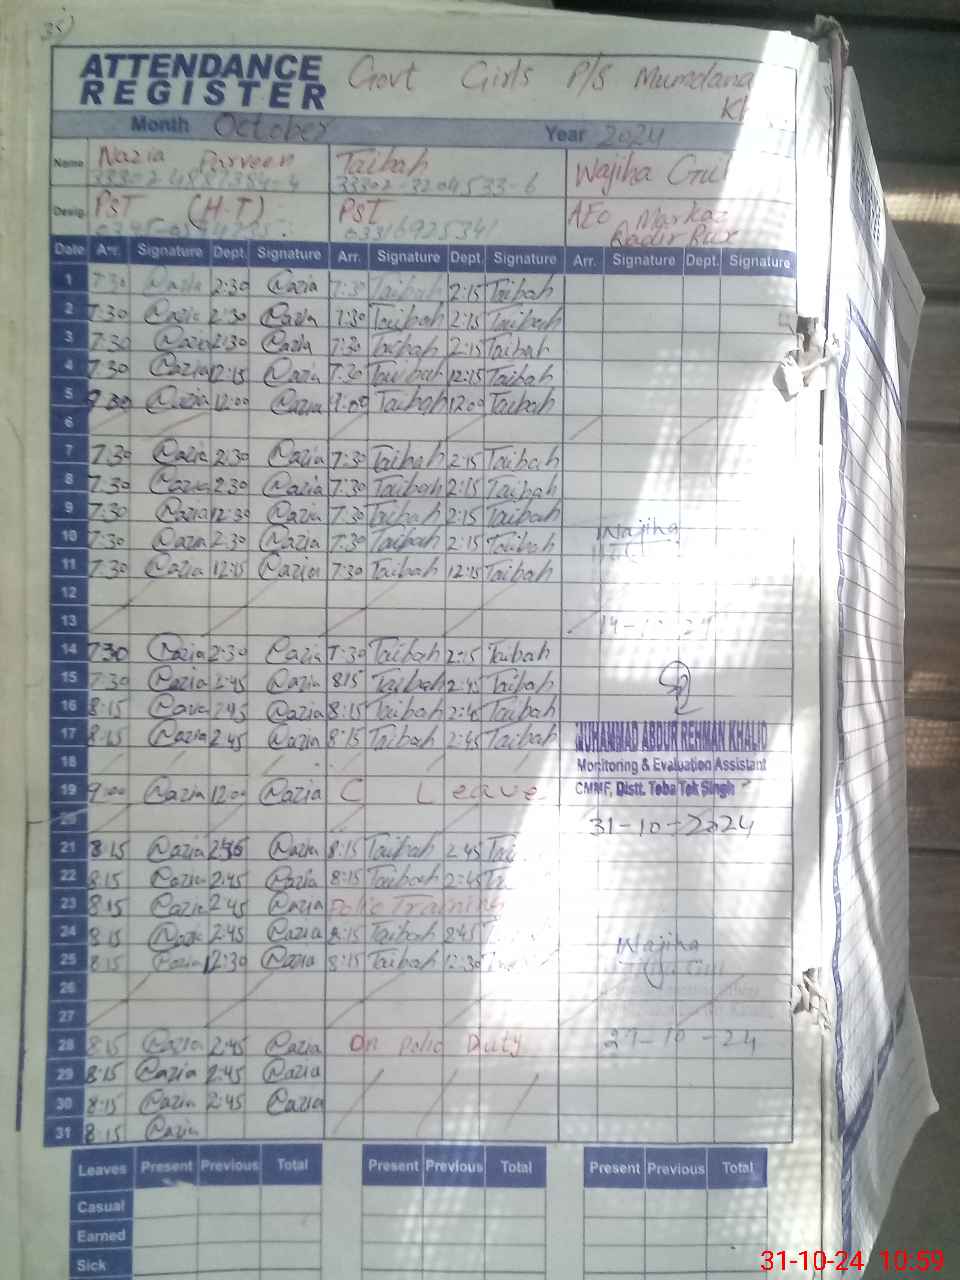 35)
ATTENDANCE REGISTER Govt Girls P/S Mumdana
Month October Year 2024
Name Nazia Parveen Taibah Wajiha Gul
33302-3204533-6
Desig. PST (H-T) PST AEO Markaz
03316925341
Date Arr. Signature Dept. Signature Arr. Signature Dept. Signature Arr. Signature Dept. Signature
1 7:30 Nazia 2:30 Nazia 7:30 Taibah 2:15 Taibah
2 7:30 Nazia 2:30 Nazia 7:30 Taibah 2:15 Taibah
3 7:30 Nazia 2:30 Nazia 7:30 Taibah 2:15 Taibah
4 7:30 Nazia 12:15 Nazia 7:30 Taibah 12:15 Taibah
5 Nazia 12:00 Nazia 9:00 Taibah 12:00 Taibah
6
7 7:30 Nazia 2:30 Nazia 7:30 Taibah 2:15 Taibah
8 7:30 Nazia 2:30 Nazia 7:30 Taibah 2:15 Taibah
9 7:30 Nazia 2:30 Nazia 7:30 Taibah 2:15 Taibah
10 7:30 Nazia 2:30 Nazia 7:30 Taibah 2:15 Taibah Wajiha
11 7:30 Nazia 12:15 Nazia 7:30 Taibah 12:15 Taibah
12
13
14 7:30 Nazia 2:30 Nazia 7:30 Taibah 2:15 Taibah
15 7:30 Nazia 2:45 Nazia 8:15 Taibah 2:45 Taibah
16 8:15 Nazia 2:45 Nazia 8:15 Taibah 2:45 Taibah
17 8:15 Nazia 2:45 Nazia 8:15 Taibah 2:45 Taibah MUHAMMAD ABDUR REHMAN KHALID
18 Monitoring & Evaluation Assistant
19 9:00 Nazia 12:00 Nazia C Leave CMMF, Distt. Toba Tek Singh
20 31-10-2024
21 8:15 Nazia 2:45 Nazia 8:15 Taibah 2:45
22 8:15 Nazia 2:45 Nazia 8:15 Taibah 2:45
23 8:15 Nazia 2:45 Nazia Polio Training
24 8:15 Nazia 2:45 Nazia 8:15 Taibah 2:45
25 8:15 Nazia 12:30 Nazia 8:15 Taibah 12:30 Wajiha
26
27
28 8:15 Nazia 2:45 Nazia On Polio Duty 29-10-24
29 8:15 Nazia 2:45 Nazia
30 8:15 Nazia 2:45 Nazia
31 8:15 Nazia
Leaves Present Previous Total Present Previous Total Present Previous Total
Casual
Earned
Sick
31-10-24 10:59